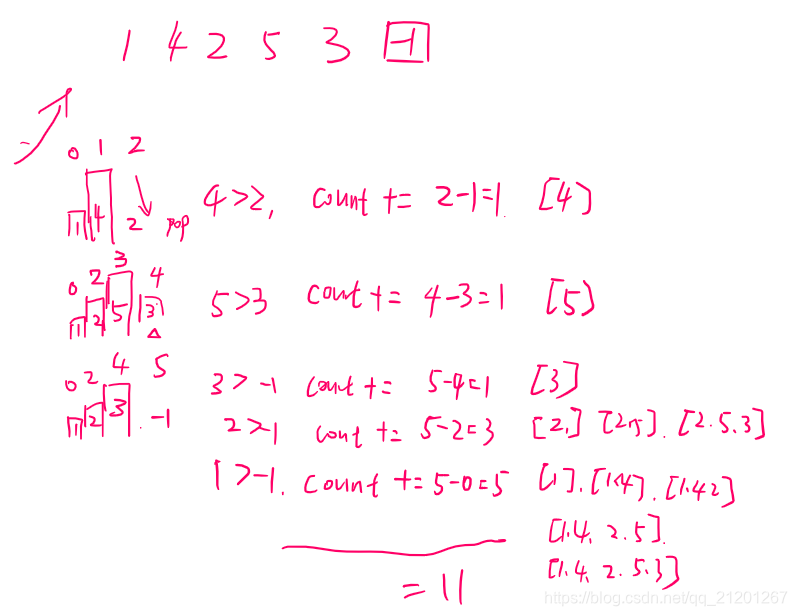 1 4 2 5 3 -1
0 1 2
1 4 2 pop 4>2, count += 2-1=1. [4]
3
0 2 4
1 2 5 3 5>3 cout += 4-3=1 [5]
0 2 4 5
1 2 3 -1 3>-1 count += 5-4=1 [3]
2>-1 cont += 5-2=3 [2,] [2,5]. [2.5.3]
1>-1. count += 5-0=5 [1], [1.4]. [1.42]
[1.4. 2.5].
[1.4. 2.5.3]
= 11
https://blog.csdn.net/qq_21201267